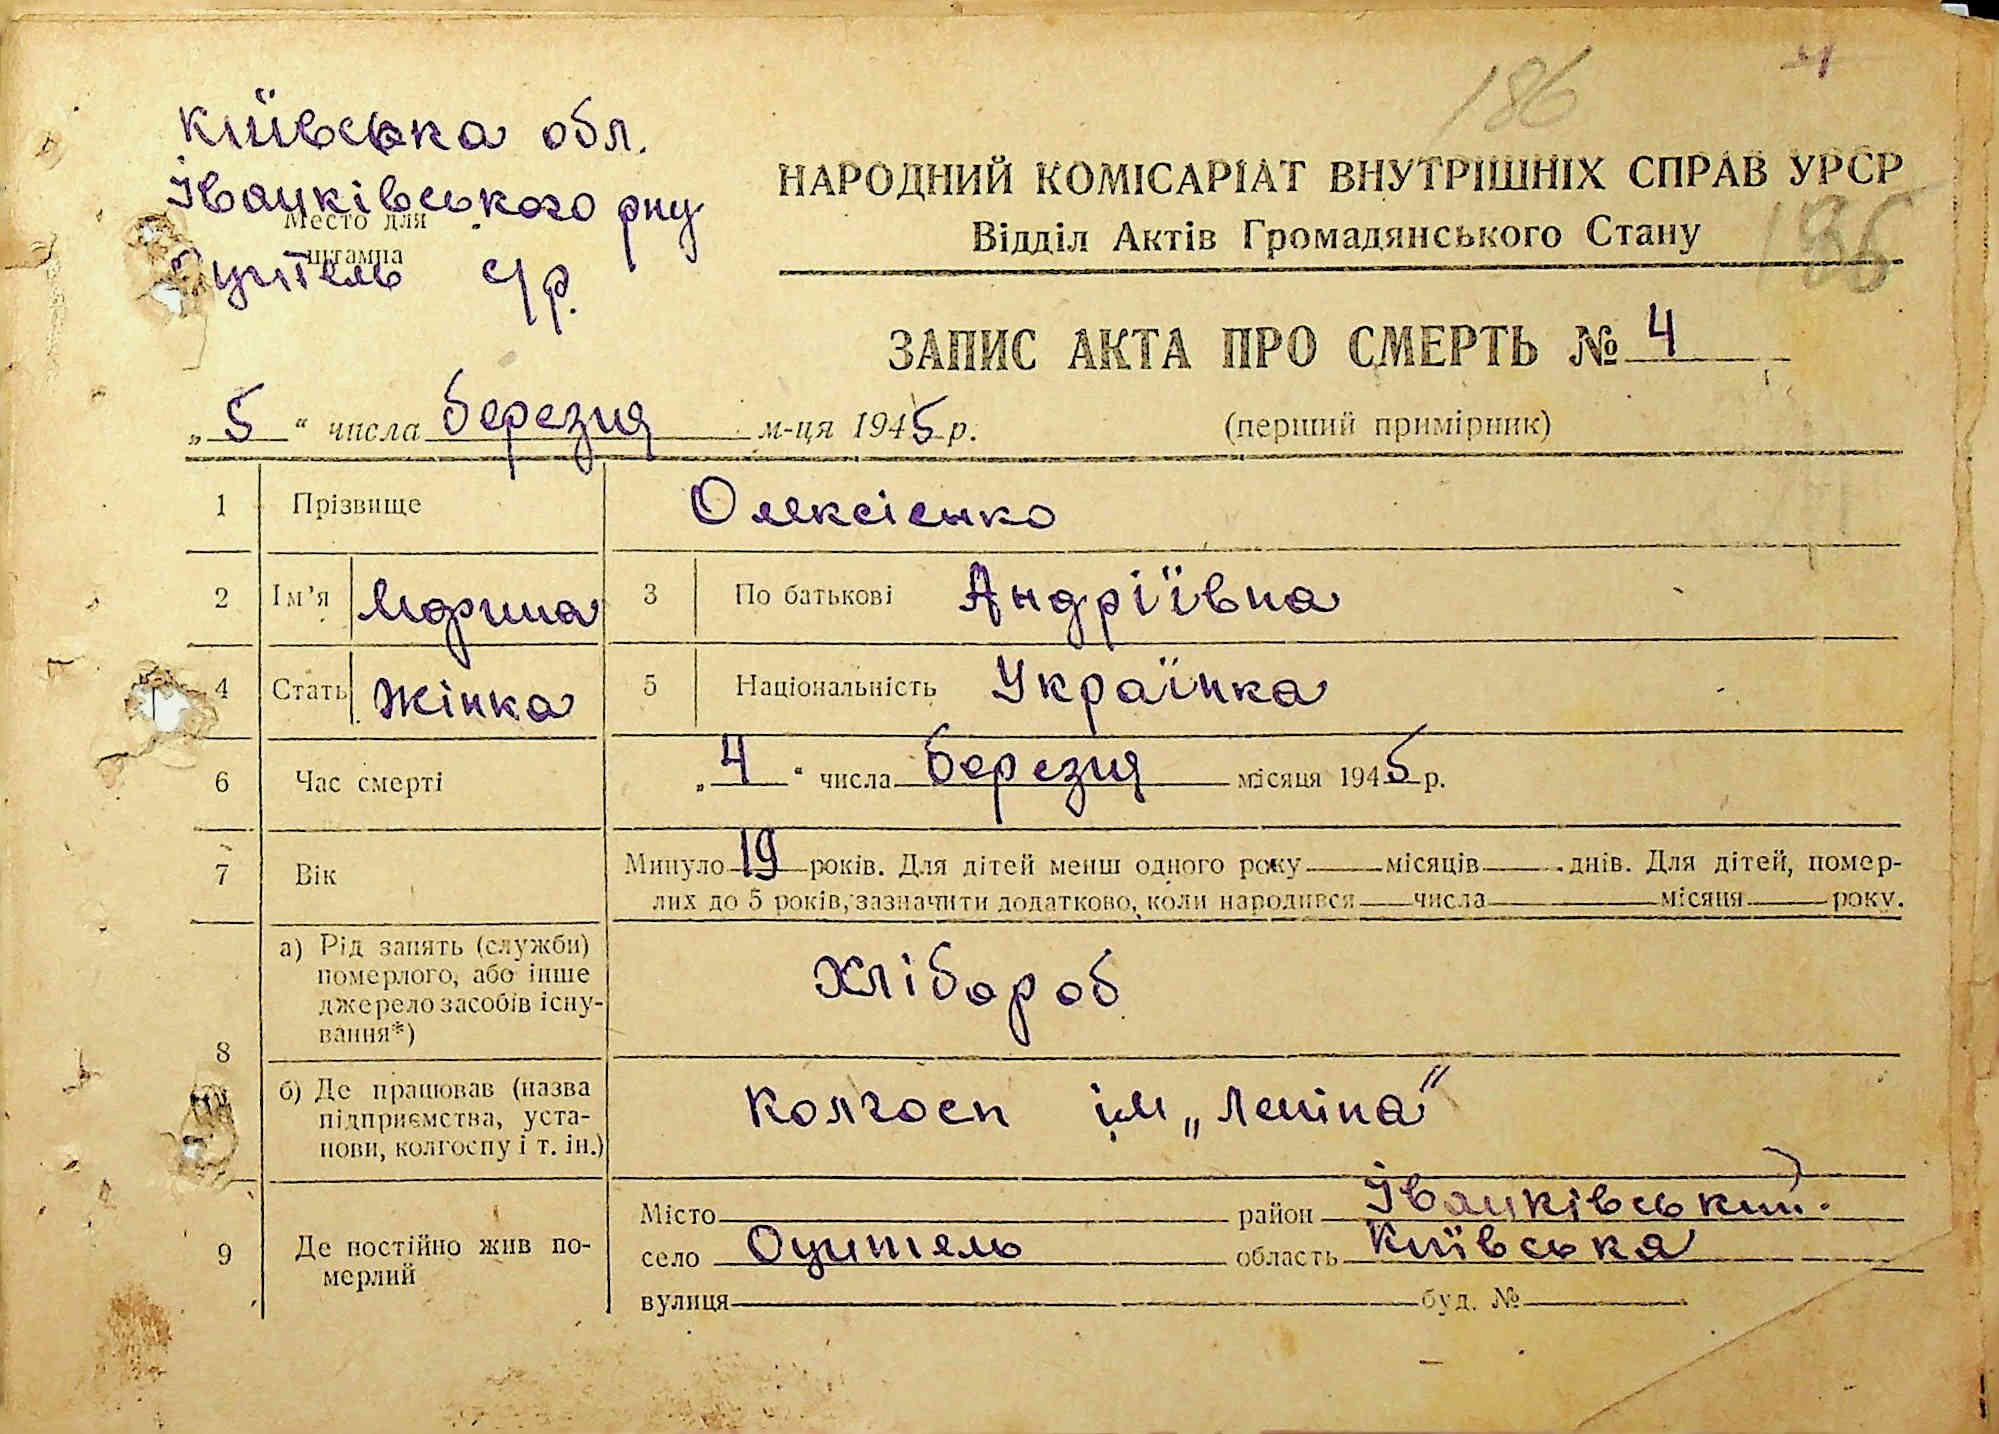 186
4
Київська обл.
Іванківського рну
Оцитель с/р.
Место для
штампа
НАРОДНИЙ КОМІСАРІАТ ВНУТРІШНІХ СПРАВ УРСР
Відділ Актів Громадянського Стану
186
ЗАПИС АКТА ПРО СМЕРТЬ № 4
„ 5 “ числа березня м-ця 1945 р. (перший примірник)
1 Прізвище Олексієнко
2 Ім’я Мфрина 3 По батькові Андріївна
4 Стать Жінка 5 Національність Українка
6 Час смерті „ 4 “ числа березня місяця 1945 р.
7 Вік Минуло 19 років. Для дітей менш одного року місяців днів. Для дітей, помер-
лих до 5 років, зазначити додатково, коли народився числа місяця року.
8 а) Рід занять (служби)
померлого, або інше
джерело засобів існу-
вання*)
Хлібороб
б) Де працював (назва
підприємства, уста-
нови, колгоспу і т. ін.)
Колгосп ім „Леніна“
9 Де постійно жив по-
мерлий
Місто район Іванківський.
село Оцитель область Київська
вулиця буд. №